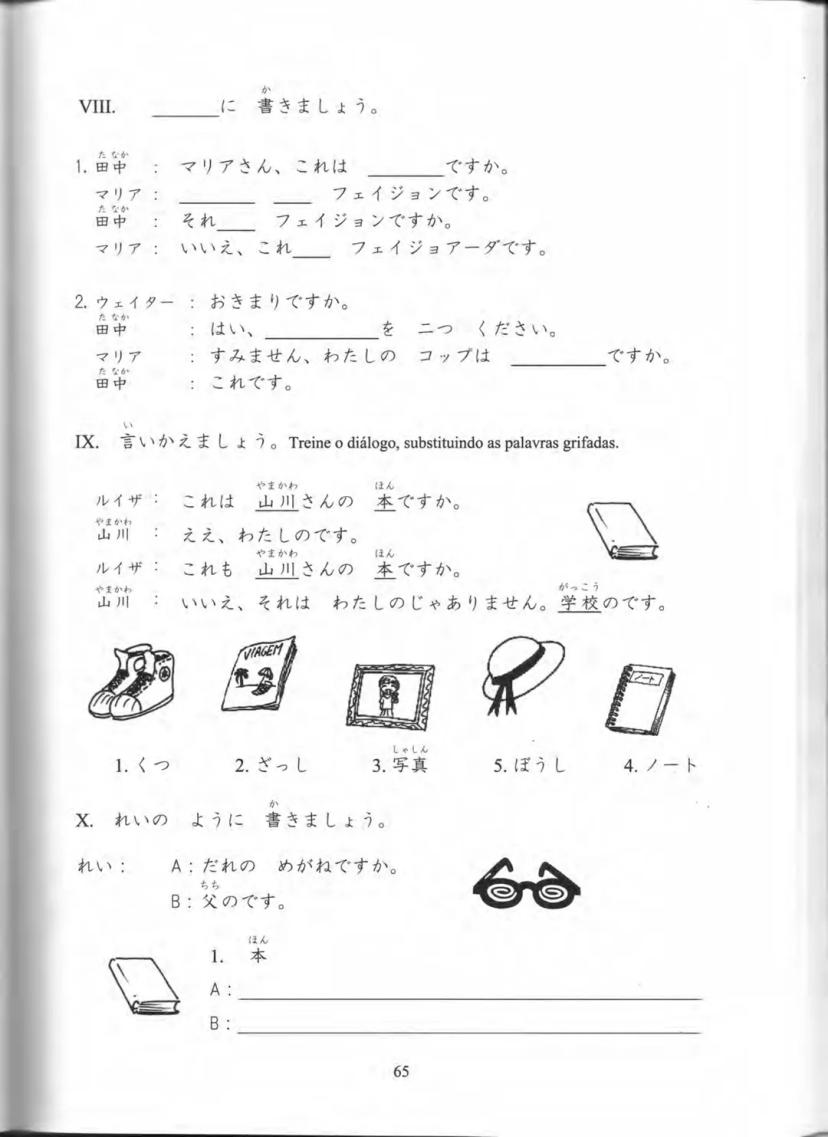 VIII. ______に 書きましょう。
か
1. 田中 : マリアさん、これは ________ですか。
たなか
マリア : ________ ____ フェイジョンです。
田中 : それ____ フェイジョンですか。
たなか
マリア : いいえ、これ____ フェイジョアーダです。
2. ウェイター : おきまりですか。
田中 : はい、____________を 二つ ください。
たなか
マリア : すみません、わたしの コップは __________ですか。
田中 : これです。
たなか
IX. 言いかえましょう。Treine o diálogo, substituindo as palavras grifadas.
い
ルイザ : これは 山川さんの 本ですか。
やまかわ ほん
山川 : ええ、わたしのです。
やまかわ
ルイザ : これも 山川さんの 本ですか。
やまかわ ほん
山川 : いいえ、それは わたしのじゃありません。学校のです。
やまかわ がっこう
VIAGEM
ノート
1. くつ 2. ざっし 3. 写真 5. ぼうし 4. ノート
しゃしん
X. れいの ように 書きましょう。
か
れい : A : だれの めがねですか。
B : 父のです。
ちち
1. 本
ほん
A : ____________________
B : ____________________
65